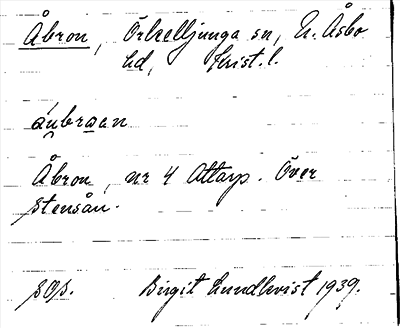 Åbron, Örkelljunga sn, N. Åsbo
hd, Krist. l.
áubraen
Åbron, nr 4 Attarp. Över
stensån.
Birgit Lundkvist 1939.